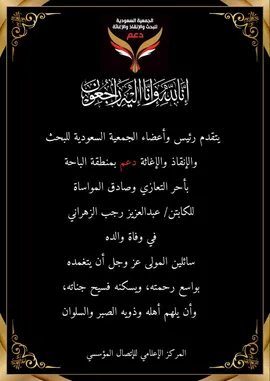 الجمعية السعودية
للبحث والإنقاذ والإغاثة
دعم
إنا لله وإنا إليه راجعون
يتقدم رئيس وأعضاء الجمعية السعودية للبحث
والإنقاذ والإغاثة دعم بمنطقة الباحة
بأحر التعازي وصادق المواساة
للكابتن/ عبدالعزيز رجب الزهراني
في وفاة والده
سائلين المولى عز وجل أن يتغمده
بواسع رحمته، ويسكنه فسيح جناته،
وأن يلهم أهله وذويه الصبر والسلوان
المركز الإعلامي للإتصال المؤسسي